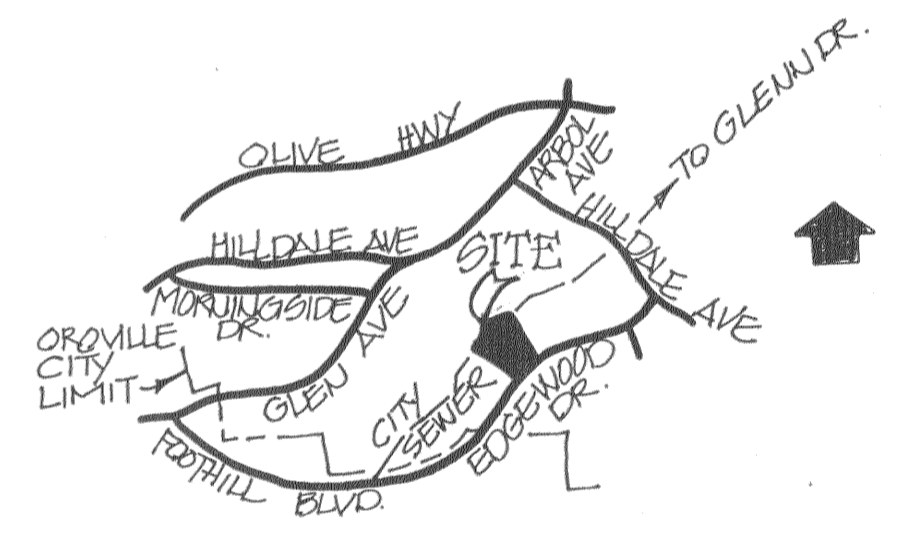 TO GLENN DR.
OLIVE HWY
ARBOL
AVE
HILLDALE AVE
HILLDALE AVE
SITE
MORNINGSIDE
DR.
OROVILLE
CITY
LIMIT
GLEN AVE
CITY
SEWER
EDGEWOOD
DR.
FOOTHILL BLVD.